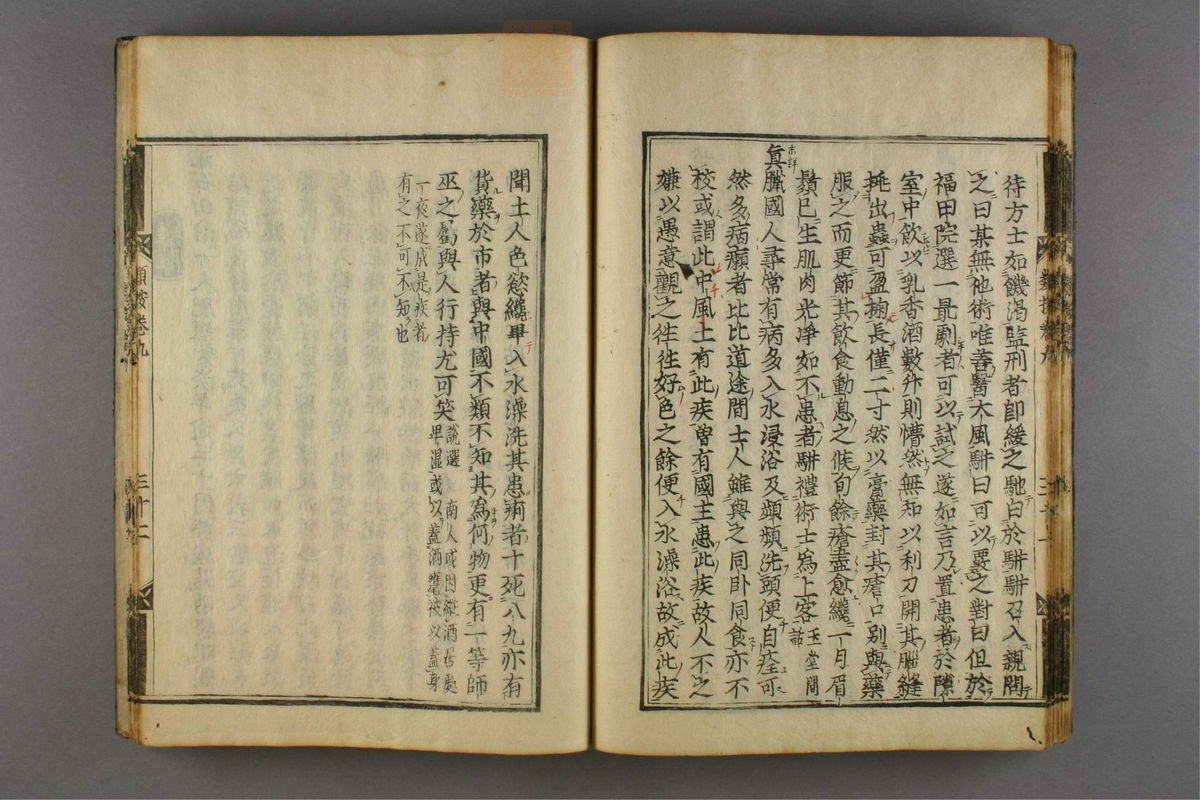 待方士如饑渴監刑者即緩之馳白於駢駢召入親問
之曰某無他術唯善醫大風駢曰可以覈之對曰但於
福田院選一最劇者可以試之遂如言乃置患者於隙
室中飲以乳香酒數升則懵然無知以利刀開其腦縫
挑出蟲可盈掬長僅二寸然以膏藥封其瘡口別與藥
服之而更節其飲食動息之候旬餘瘡盡愈纔一月眉
鬚已生肌肉光淨如不患者駢禮術士為上客玉堂閒話
未詳
真臘國人尋常有病多入水浸浴及頻頻洗頭便自痊可
然多病癩者比比道途間士人雖與之同臥同食亦不
校或謂此中風土有此疾曾有國主患此疾故人不之
嫌以愚意觀之往往好色之餘便入水澡浴故成此疾
聞土人色慾纔畢入水澡洗其患痢者十死八九亦有
貨藥於市者與中國不類不知其為何物更有一等師
巫之屬與人行持尤可笑說選 南人或因縱酒居處
卑湿或以蓋酒甕被以蓋身
一夜遂成是疾者
有之不可不知也
類按卷九
三十二